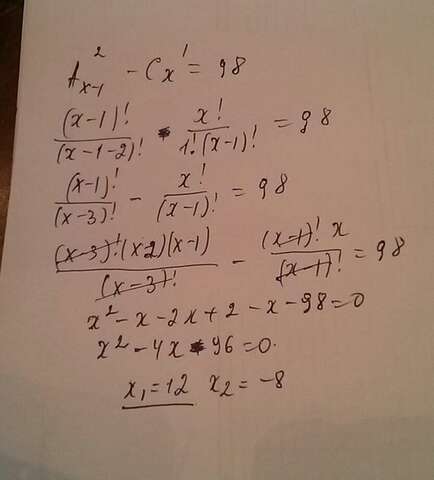 A²ₓ₋₁ - Cₓ¹ = 98
(x-1)!/(x-1-2)! - x!/1!(x-1)! = 98
(x-1)!/(x-3)! - x!/(x-1)! = 98
(x-3)!(x-2)(x-1)/(x-3)! - (x-1)! x/(x-1)! = 98
x² - x - 2x + 2 - x - 98 = 0
x² - 4x - 96 = 0.
x₁ = 12 x₂ = -8